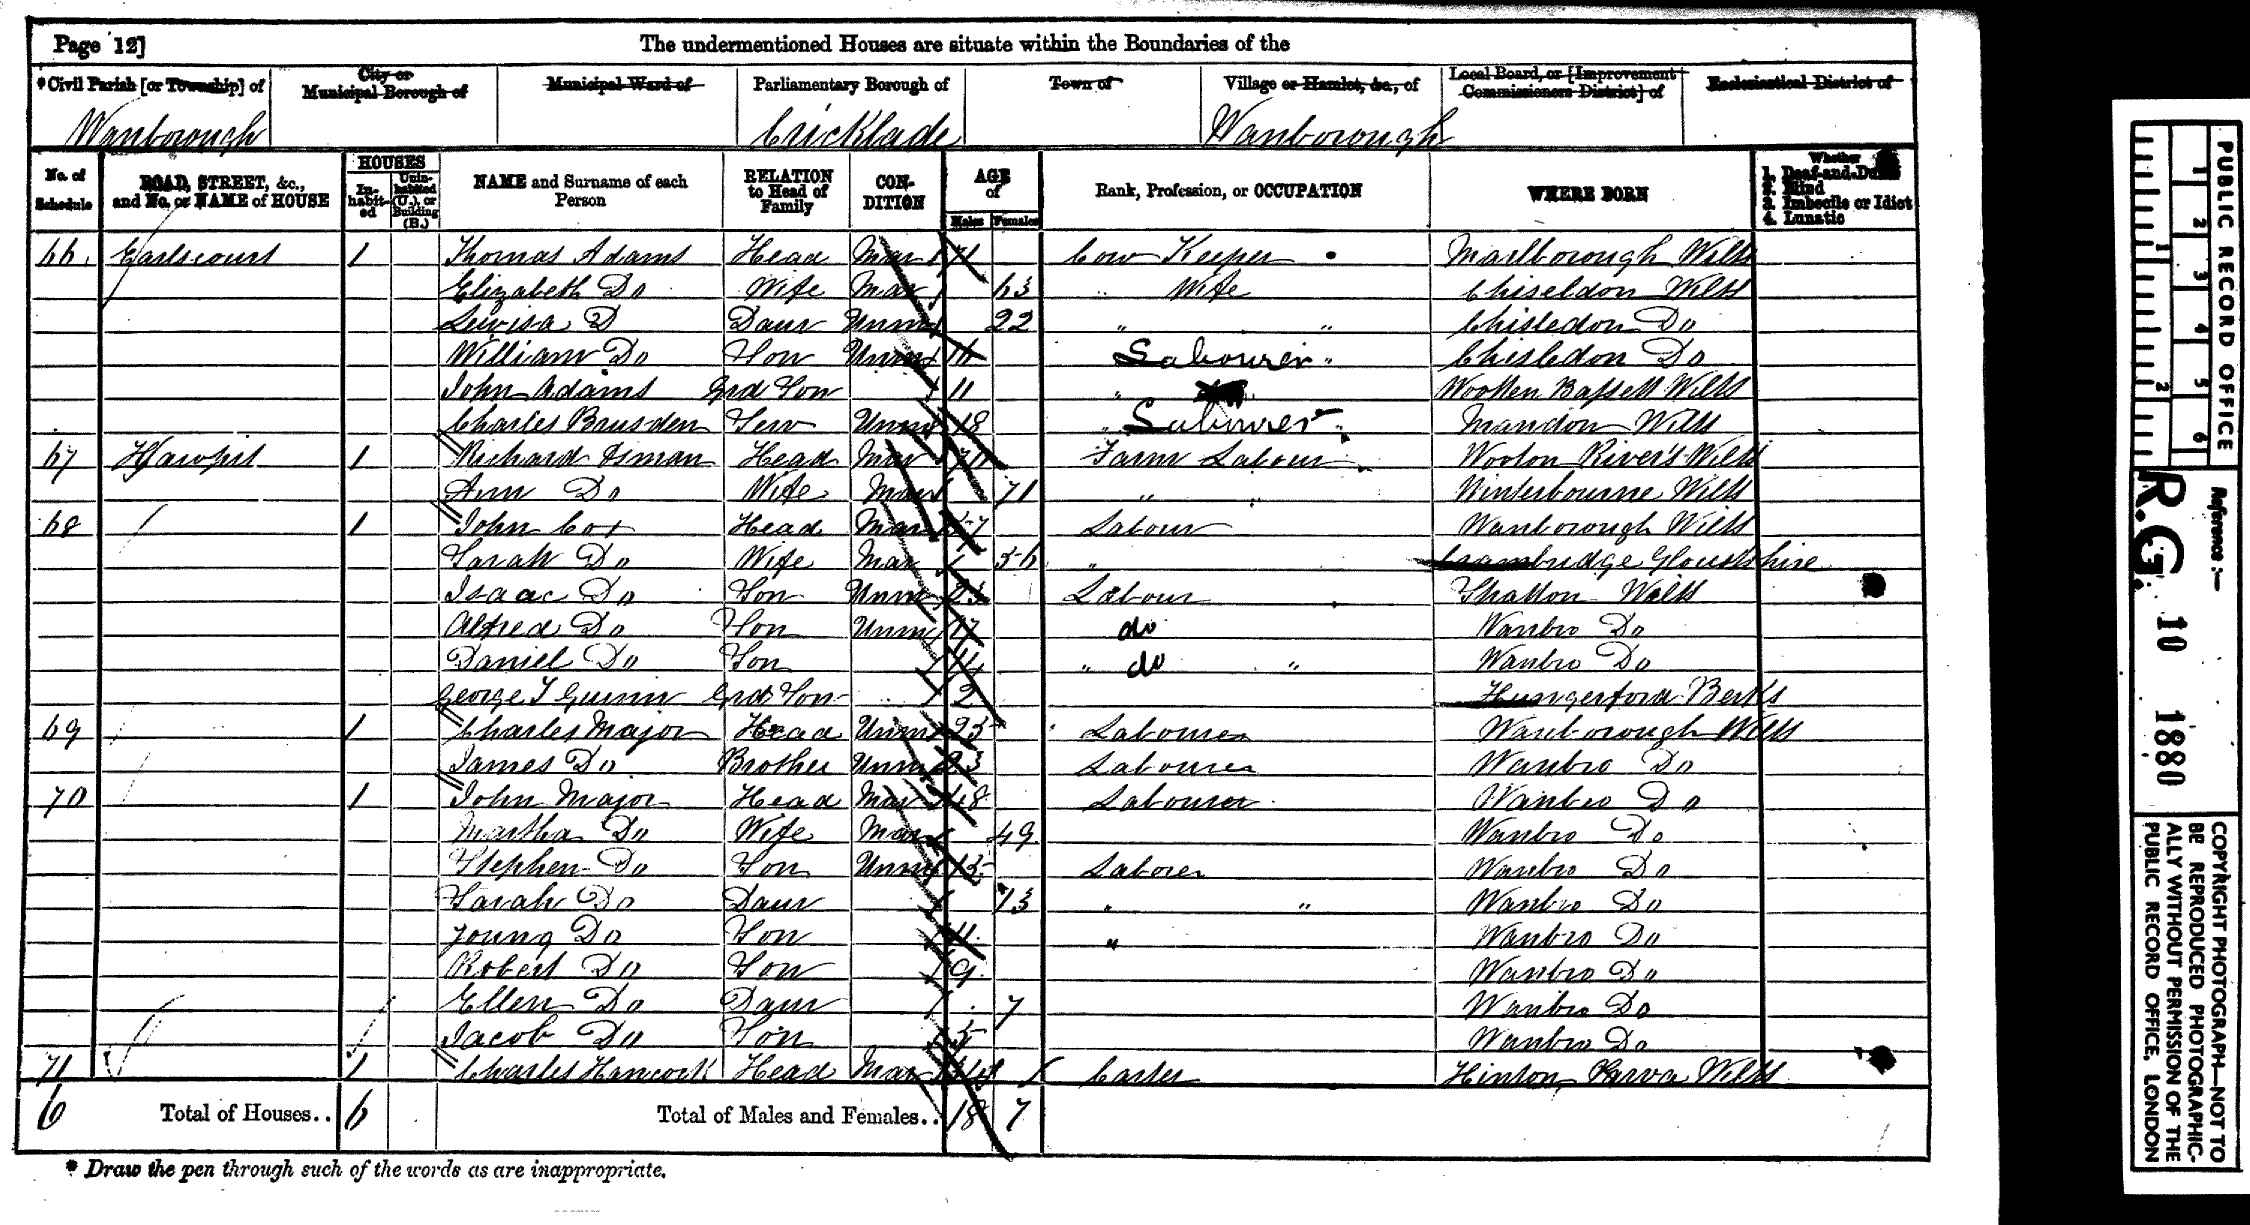 Page 12]
The undermentioned Houses are situate within the Boundaries of the
* Civil Parish [or Township] of
City or Municipal Borough of
Municipal Ward of
Parliamentary Borough of
Town of
Village or Hamlet, &c., of
Local Board, or [Improvement Commissioners District] of
Ecclesiastical District of
Wanborough Cricklade Wanborough
No. of Schedule
ROAD, STREET, &c., and No. or NAME of HOUSE
HOUSES
In-habit-ed
Unin-habited (U.), or Building (B.)
NAME and Surname of each Person
RELATION to Head of Family
CON-DITION
AGE of
Males Females
Rank, Profession, or OCCUPATION
WHERE BORN
Whether
1. Deaf-and-Dumb
2. Blind
3. Imbecile or Idiot
4. Lunatic
66 Earlscourt 1 Thomas Adams Head Mar 71 Cow Keeper Marlborough Wilts
Elizabeth Do Wife Mar 63 " Wife Chiseldon Wilts
Lewisa D Daur Unm 22 " " Chisledon Do
William Do Son Unm 16 Labourer " Chisledon Do
John Adams Grd Son 11 " Wootten Bassett Wilts
Charles Brusden Serv Unm 18 " Labourer " Wilts
67 1 Richard Head Mar Farm Labour Wooton River's Wilts
Ann Do Wife Mar 71 " " Winterbourne Wilts
68 1 John Cox Head Mar 57 Labour Wanborough Wilts
Sarah Do Wife Mar 56 " Cambridge Gloustshire
Isaac Do Son Unm 23 Labour Shatton Wilts
Alfred Do Son Unm 17 do Wanbro Do
Daniel Do Son 14 " do " Wanbro Do
George T Gunn Grd Son 2 Hungerford Berks
69 1 Charles Major Head Unm 25 Labourer Wanborough Wilts
James Do Brother Unm 23 Labourer Wanbro Do
70 1 John Major Head Mar 48 Labourer Wanbro Do
Martha Do Wife Mar 49 Wanbro Do
Stephen Do Son Unm 15 Laborer Wanbro Do
Sarah Do Daur 13 " " Wanbro Do
Young Do Son 11 " Wanbro Do
Robert Do Son 9 Wanbro Do
Ellen Do Daur 7 Wanbro Do
Jacob Do Son 5 Wanbro Do
71 1 Charles Hancock Head Mar Carter Hinton Parva Wilts
6 Total of Houses.. 6 Total of Males and Females.. 18 7
* Draw the pen through such of the words as are inappropriate.
PUBLIC RECORD OFFICE
1 2 3 4 5 6
1 2
Reference :—
R.G. 10 1880
COPYRIGHT PHOTOGRAPH—NOT TO
BE REPRODUCED PHOTOGRAPHIC-
ALLY WITHOUT PERMISSION OF THE
PUBLIC RECORD OFFICE, LONDON